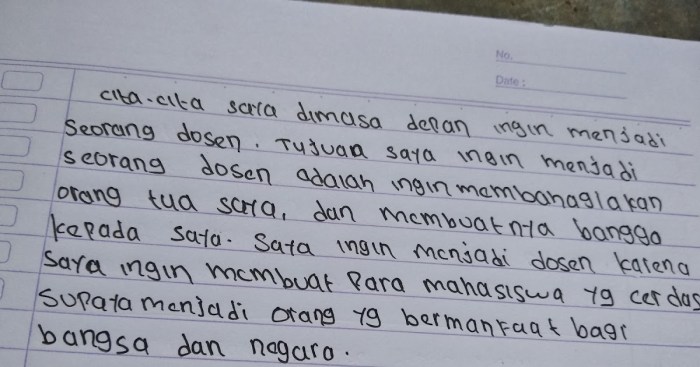 No.
Date :
cita-cita saya dimasa depan ingin menjadi
seorang dosen. Tujuan saya ingin menjadi
seorang dosen adalah ingin membahagiakan
orang tua saya, dan membuatnya bangga
kepada saya. Saya ingin menjadi dosen karena
saya ingin membuat para mahasiswa yg cerdas
supaya menjadi orang yg bermanfaat bagi
bangsa dan negara.